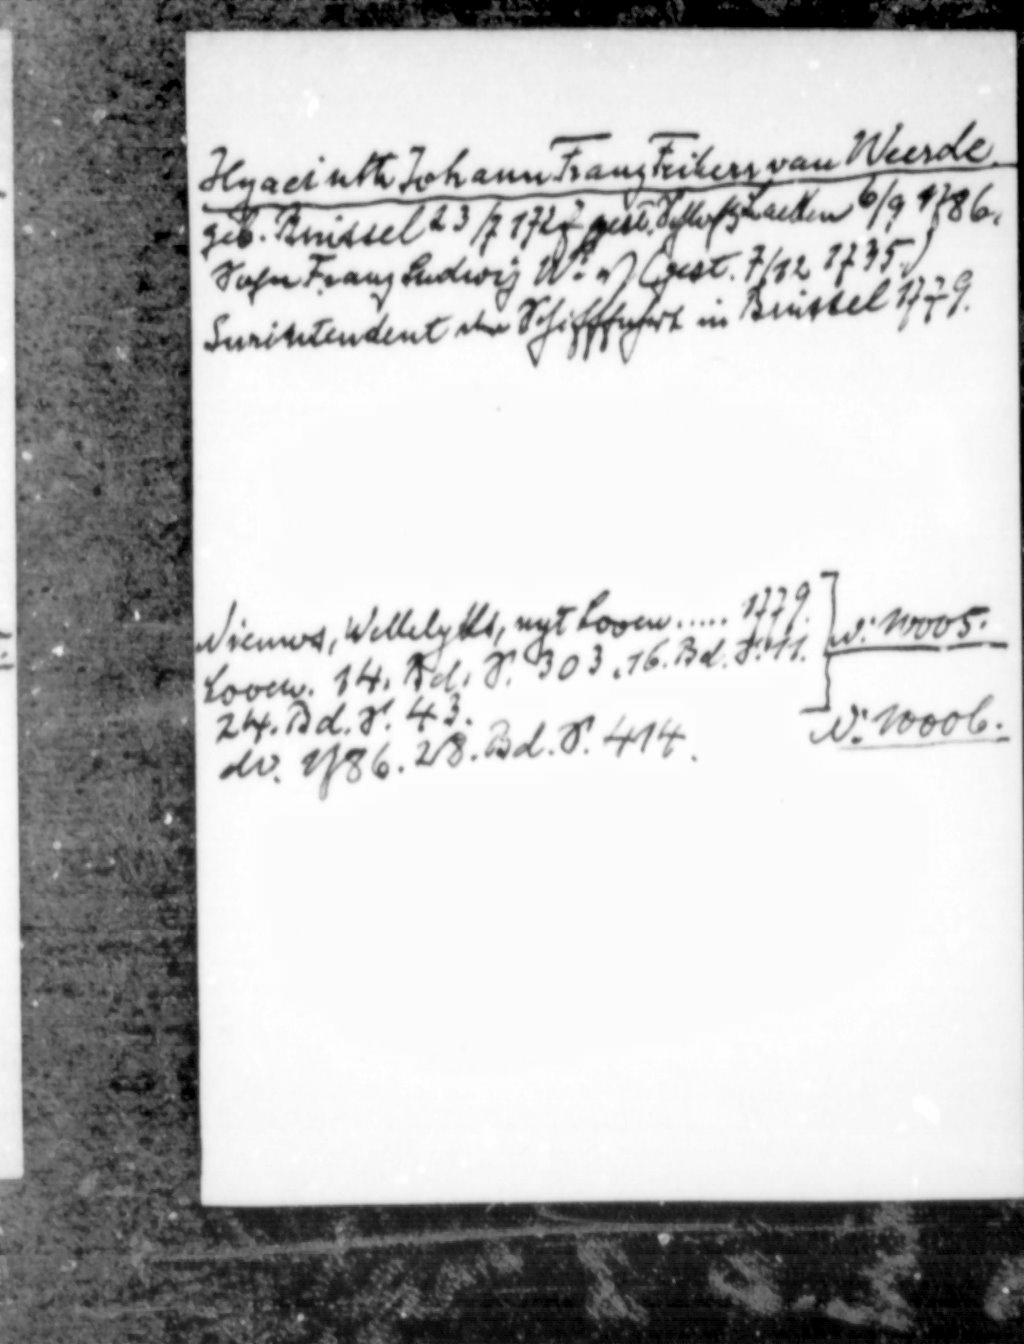 Hyacinth Johann Franz Freiherr van Weerde
geb. Brüssel 23/7 1727 gest. Schloß Laeken 6/9 1786.
Sohn Franz Ludwig W. (gest. 7/12 1735.)
Surintendent der Schifffahrt in Brüssel 1779.
Nieuws, Wekkelyks, uyt Loven ..... 1779.
Loven. 14. Bd. S. 303. 16. Bd. S. 11.
24. Bd. S. 43.
do. 1786. 28. Bd. S. 414.
N: 10005.
N: 10006.